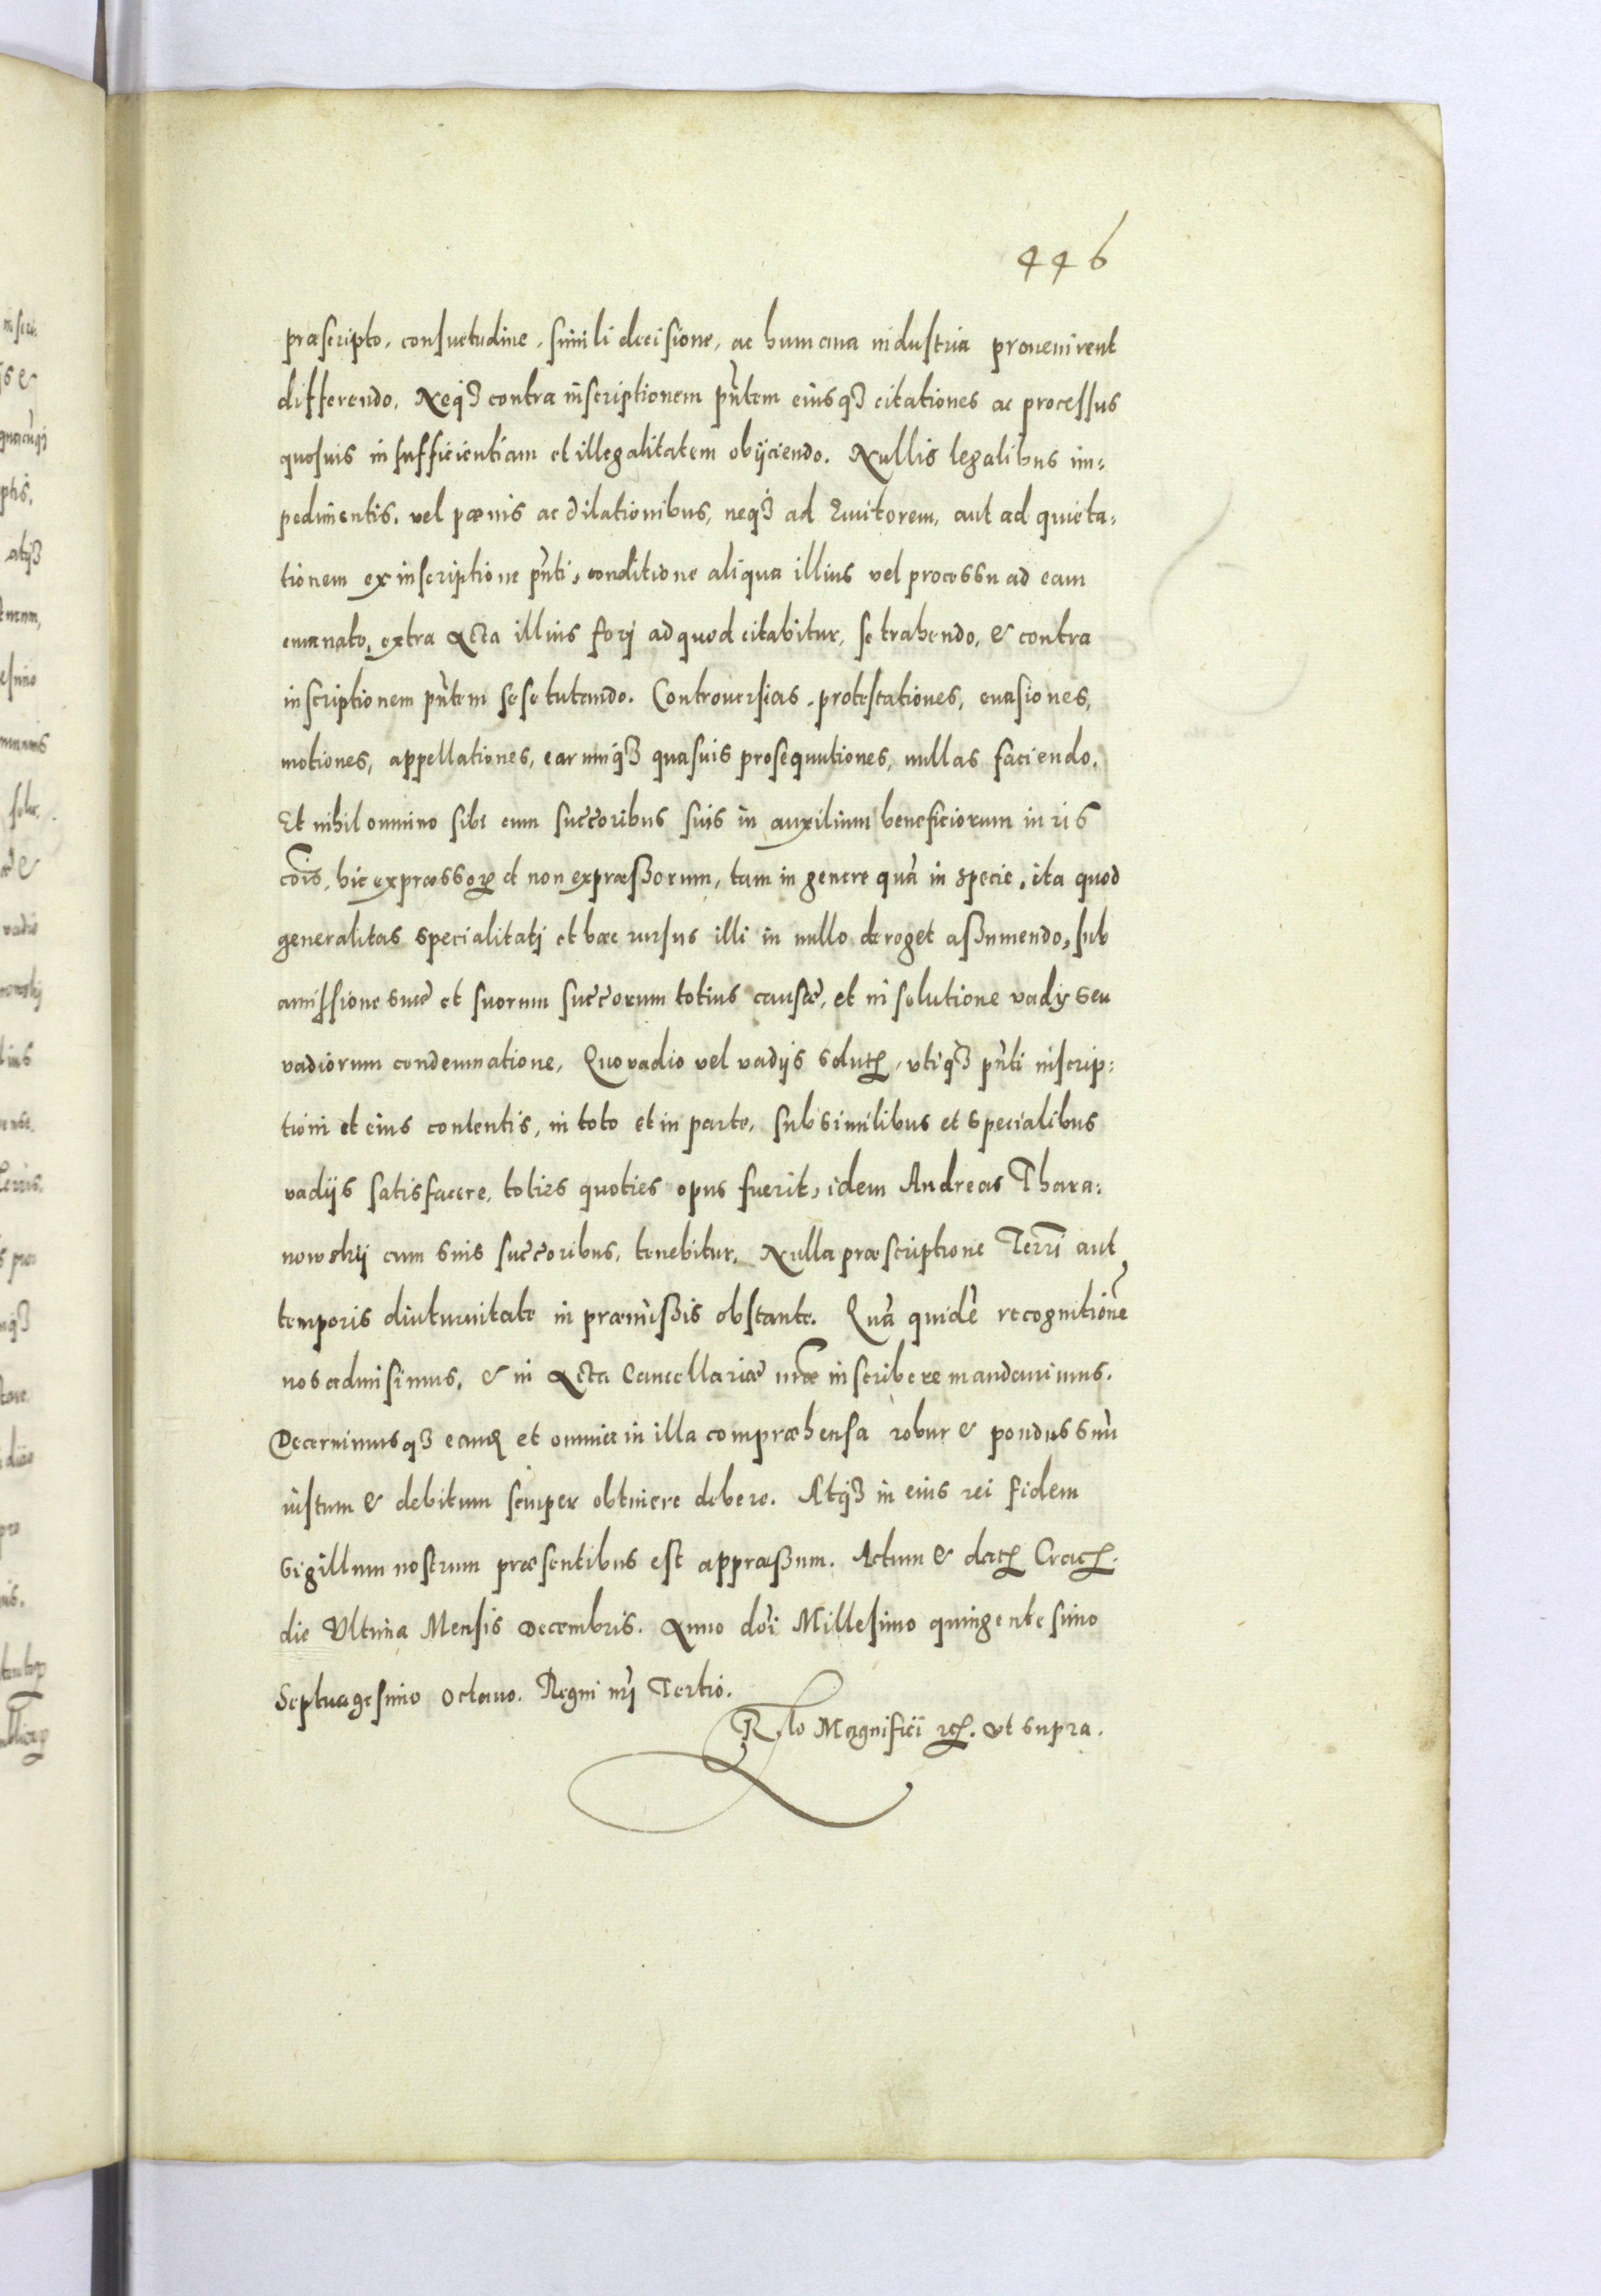 446
præscripto, consuetudine, simili decisione, ac humana industria prouenirent
differendo. Neq3 contra inscriptionem pñtem eiusq3 citationes ac processus
quosuis insufficientiam et illegalitatem obijciendo. Nullis legalibus im=
pedimentis, vel pœnis ac dilationibus, neq3 ad Euitorem, aut ad quieta=
tionem ex inscriptione pñti, conditione aliqua illius vel processu ad eam
emanato, extra Acta illius forj ad quod citabitur, se trahendo, & contra
inscriptionem pñtem sese tutando. Controuersias, protestationes, euasiones,
motiones, appellationes, earumq3 quasuis prosequutiones, nullas faciendo.
Et nihil omnino sibi cum succ̃oribus suis in auxilium beneficiorum iuris
cõis, hic expræssoꝝ et non expræßorum, tam in genere quã in specie, ita quod
generalitas specialitatj et hæc rursus illi in nullo deroget aßumendo, sub
amissione suæ et suorum succ̃orum totius causæ, et in solutione vadij seu
vadiorum condemnatione, Quo vadio vel vadijs solut, vtiq3 pñti inscrip=
tioni et eius contentis, in toto et in parte, sub similibus et specialibus
vadijs satisfacere, toties quoties opus fuerit, idem Andreas Thara=
nowskij cum suis succ̃oribus, tenebitur. Nulla præscriptione Terrĩ aut
temporis diuturnitate in præmißis obstante. Quã quidẽ recognitionẽ
nos admisimus, & in Acta Cancellariæ nr̃æ inscribere mandauimus.
Decernimusq3 eand et omnia in illa compræhensa robur & pondus suũ
iustum & debitum semper obtinere debere. Atq3 in eius rei fidem
sigillum nostrum præsentibus est appræßum. Actum & dat Crac.
die Vltima Mensis Decembris. Anno dñi Millesimo quingentesimo
Septuagesimo octauo. Regni nr̃j Tertio.
R.lo Magnificĩ etc. vt supra.